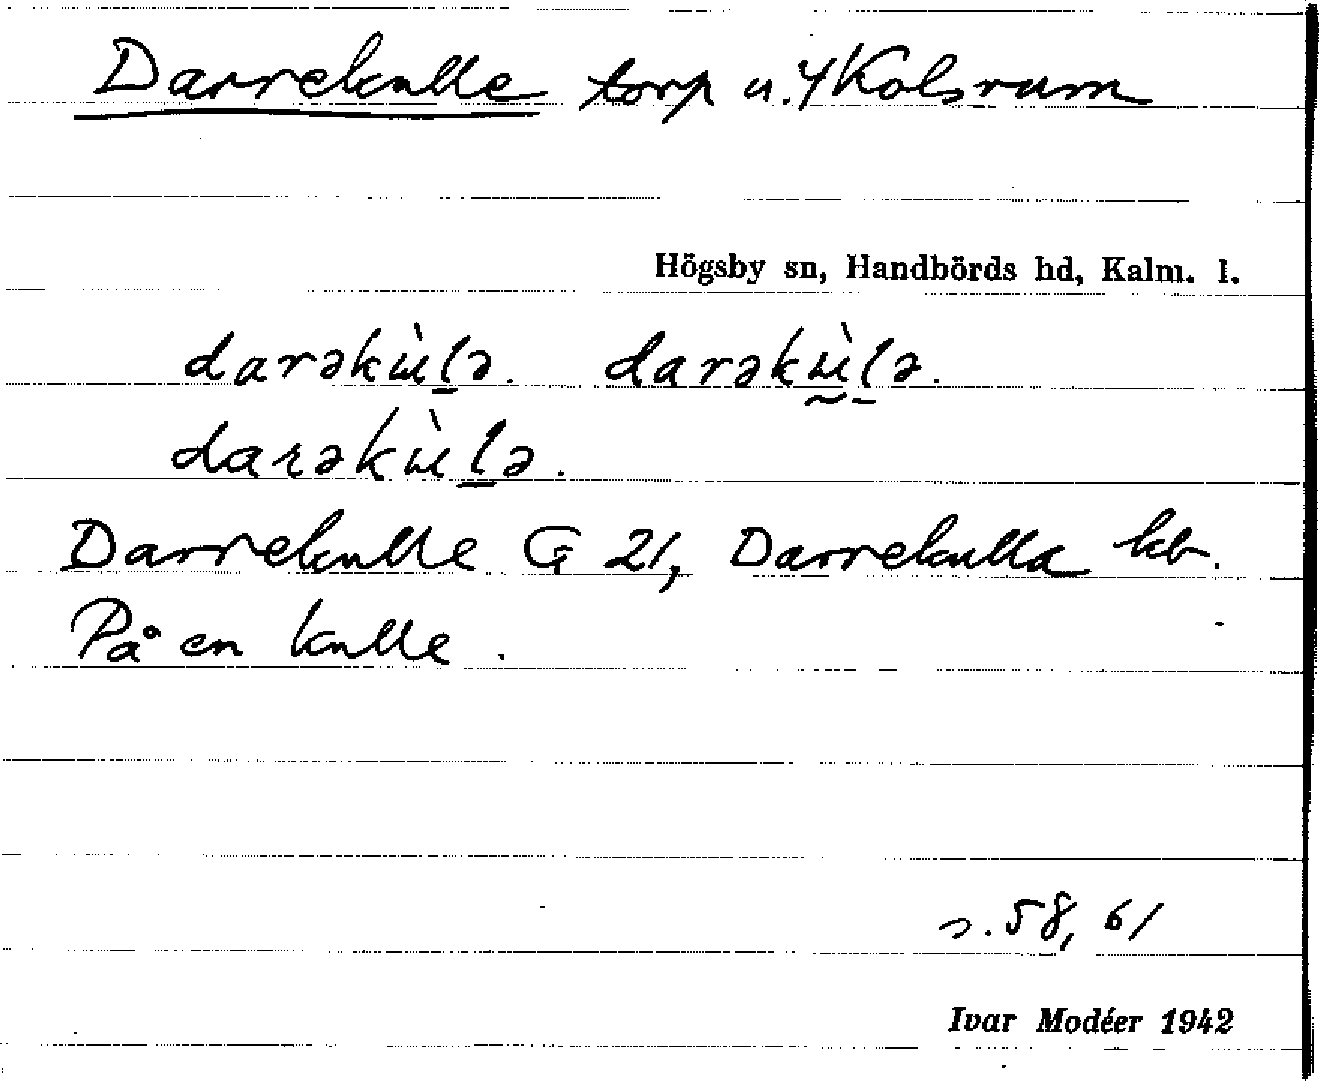 Darrekulle torp u. Y Kolsrum
Högsby sn, Handbörds hd, Kalm. l.
darəkùl̲ə. darəkṵ̀l̲ə.
daɿəkùl̲ə.
Darrekulle G 21, Darrekulla kb.
På en kulle.
s. 58, 61
Ivar Modéer 1942